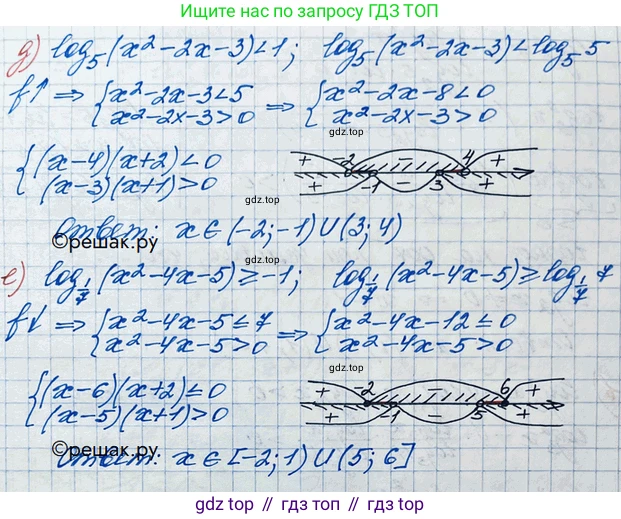 Ищите нас по запросу ГДЗ ТОП
д) log₅(x²-2x-3)<1; log₅(x²-2x-3)<log₅5
f↑ ⇒ { x²-2x-3<5 ⇒ { x²-2x-8<0
x²-2x-3>0 x²-2x-3>0
gdz.top
{ (x-4)(x+2)<0
(x-3)(x+1)>0
+ -2 - 4 +
+ -1 - 3 +
gdz.top
gdz.top
Ответ: x∈(-2;-1)∪(3;4)
©решак.ру
е) log_{1/7}(x²-4x-5)≥-1; log_{1/7}(x²-4x-5)≥log_{1/7}7
gdz.top
f↓ ⇒ { x²-4x-5≤7 ⇒ { x²-4x-12≤0
x²-4x-5>0 x²-4x-5>0
gdz.top
{ (x-6)(x+2)≤0
(x-5)(x+1)>0
+ -2 - 6 +
+ -1 - 5 +
©решак.ру
gdz.top
Ответ: x∈[-2;1)∪(5;6]
gdz.top // гдз.топ // gdz.top // гдз.топ // gdz.top